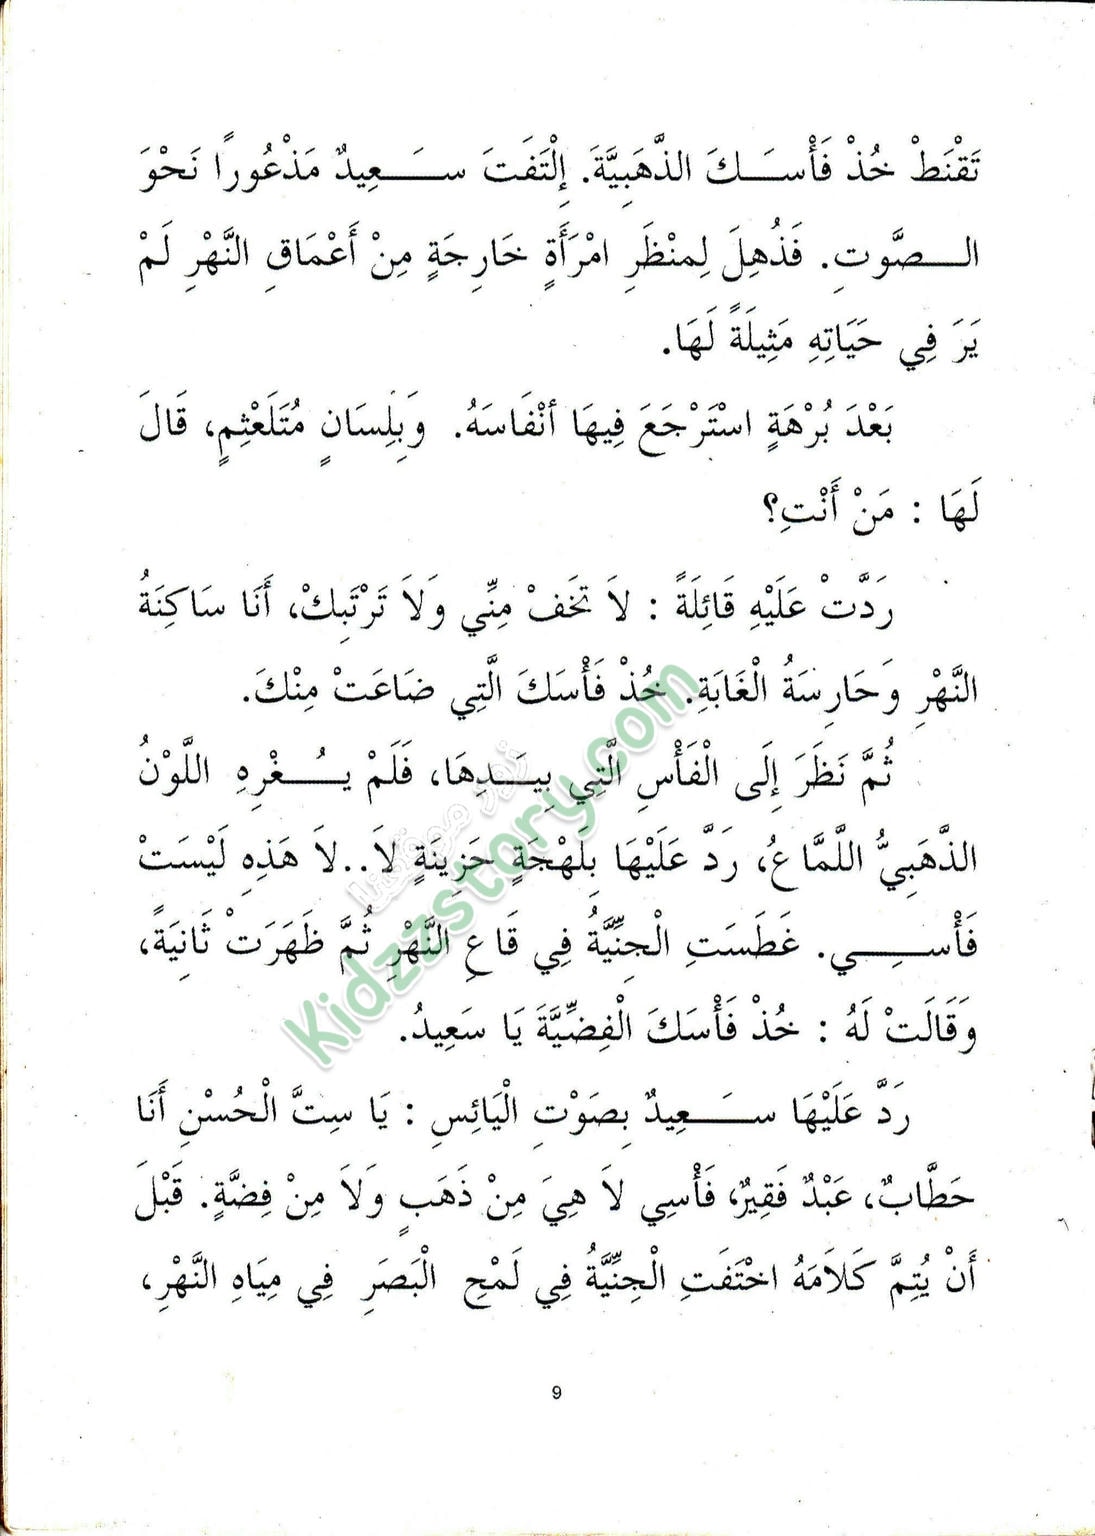 تَقْنَطْ خُذْ فَأْسَكَ الذَّهَبِيَّةَ. إِلْتَفَتَ سَعِيدٌ مَذْعُورًا نَحْوَ
الصَّوتِ. فَذُهِلَ لِمنْظَرِ امْرَأَةٍ خَارِجَةٍ مِنْ أَعْمَاقِ النَّهْرِ لَمْ
يَرَ فِي حَيَاتِهِ مَثِيلَةً لَهَا.
بَعْدَ بُرْهَةٍ اسْتَرْجَعَ فِيهَا أنْفَاسَهُ. وَبِلِسَانٍ مُتَلَعْثِمٍ، قَالَ
لَهَا : مَنْ أَنْتِ؟
رَدَّتْ عَلَيْهِ قَائِلَةً : لاَ تَخَفْ مِنِّي وَلاَ تَرْتَبِكْ، أَنَا سَاكِنَةُ
النَّهْرِ وَحَارِسَةُ الْغَابَةِ. خُذْ فَأْسَكَ الَّتِي ضَاعَتْ مِنْكَ.
ثُمَّ نَظَرَ إِلَى الْفَأْسِ الَّتِي بِيَدِهَا، فَلَمْ يُغْرِهِ اللَّوْنُ
الذَّهَبِيُّ اللَّمَّاعُ، رَدَّ عَلَيْهَا بِلَهْجَةٍ حَزِينَةٍ لَا..لاَ هَذِهِ لَيْسَتْ
فَأْسِي. غَطَسَتِ الْجِنِّيَّةُ فِي قَاعِ النَّهْرِ ثُمَّ ظَهَرَتْ ثَانِيَةً،
وَقَالَتْ لَهُ : خُذْ فَأْسَكَ الْفِضِّيَّةَ يَا سَعِيدُ.
رَدَّ عَلَيْهَا سَعِيدٌ بِصَوْتِ الْيَائِسِ : يَا سِتَّ الْحُسْنِ أَنَا
حَطَّابٌ، عَبْدٌ فَقِيرٌ، فَأْسِي لاَ هِيَ مِنْ ذَهَبٍ وَلاَ مِنْ فِضَّةٍ. قَبْلَ
أَنْ يُتِمَّ كَلاَمَهُ اخْتَفَتِ الْجِنِّيَّةُ فِي لَمْحِ الْبَصَرِ فِي مِيَاهِ النَّهْرِ،
9
زوروا موقعنا
Kidzzstory.com